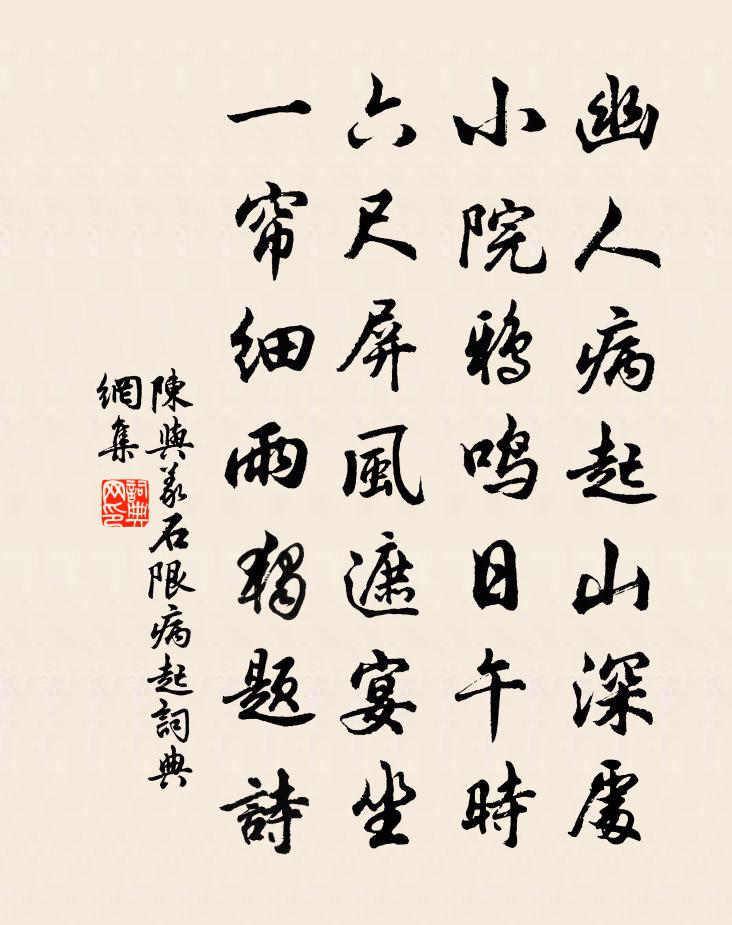 幽人病起山深處
小院鴉鳴日午時
六尺屏風遮宴坐
一帘細雨獨題詩
陳與義石限病起詞典
網集
詞典
网印